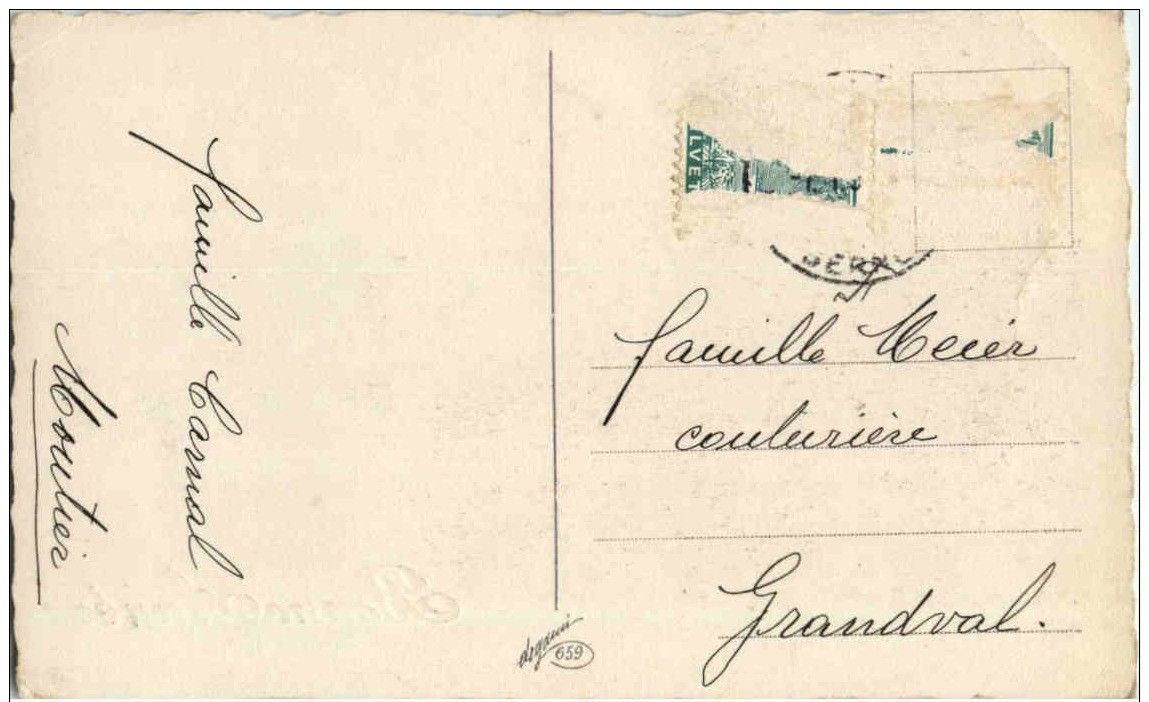 famille Carnal
Moutier
LVET
BERN
famille Meier
couturière
Grandval.
degami
659